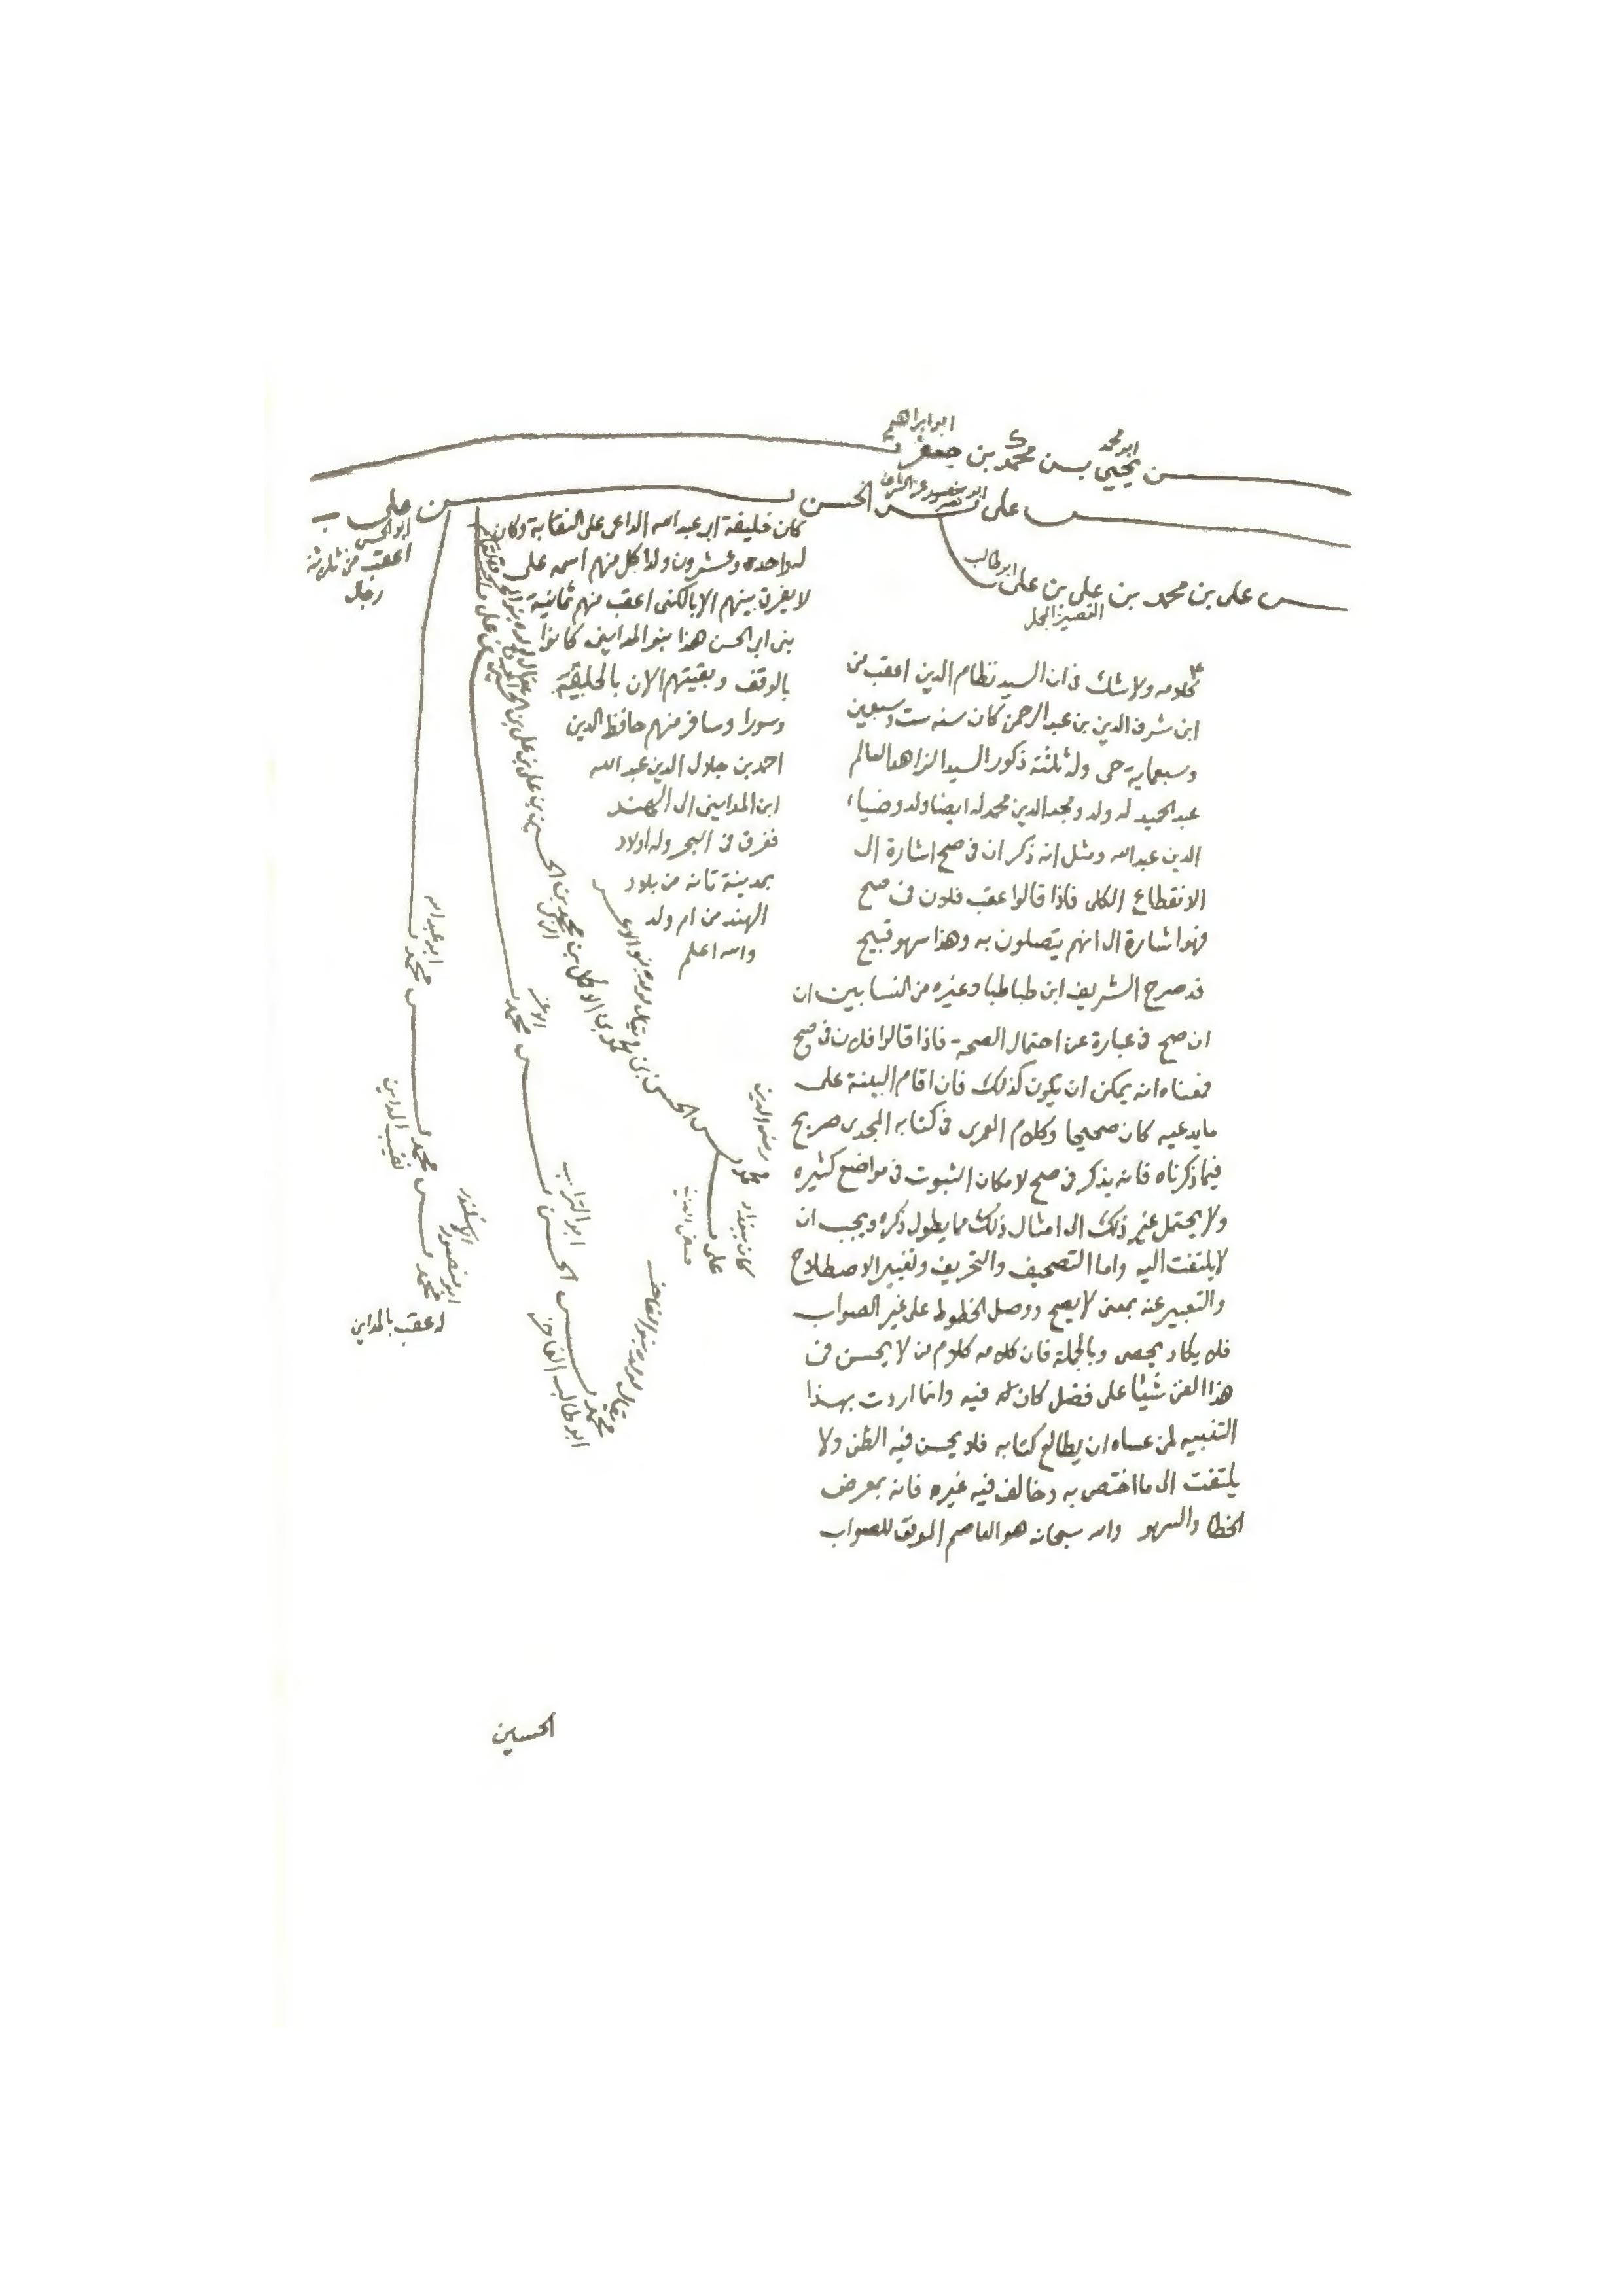 ابو ابراهيم
ابو محمد
بن يحيى بن محمد بن جعفر
علي بن الحسن بن علي
ابو الحسن
اعقب من ثلاثة
رجال
ابو طالب
بن علي بن محمد بن علي بن علي
القصير
كان خليفة ابي عبد الله الداعي على النقابة وكان
له واحد وعشرون ولدا كل منهم اسمه علي
لا يفرق بينهم الا بالكنى اعقب منهم ثمانية
بنى ابي الحسن هذا بنو المدايني كانوا
بالوقف وبقيتهم الان بالحليقية
وسورا وسافر منهم حافظ الدين
احمد بن جلال الدين عبد الله
ابن المدايني الى الهند
فغرق في البحر وله اولاد
بمدينة تانه من بلاد
الهند من ام ولد
والله اعلم
كلامه ولا شك في ان السيد نظام الدين اعقب من
ابن شرف الدين بن عبد الرحمن كان سنه ست وسبعين
وسبعماية حى وله ثلثة ذكور السيد الزاهد العالم
عبد الحميد له ولد ومجد الدين محمد له ايضا ولد وضياء
الدين عبد الله ومثل انه ذكر ان في صح اشارة الى
الانقطاع الكلى فاذا قالوا عقب فلان في صح
فهو اشارة الى انهم يتصلون به وهذا سهو قبيح
قد صرح الشريف ابن طباطبا وغيره من النسابين ان
ان صح في عبارة عن احتمال الصحة فاذا قالوا فلان في صح
فمعناه انه يمكن ان يكون كذلك فان اقام البينة على
ما يدعيه كان صحيحا وكلام العمرى في كتابه المجدى صريح
فيما ذكرناه فانه يذكر في صح لامكان الثبوت في مواضع كثيره
ولا يحتمل غير ذلك الى امثال ذلك مما يطول ذكره ويجب ان
لا يلتفت اليه واما التصحيف والتحريف وتغيير الاصطلاح
والتعبير عنه بمعنى لا يصح ووصل الخطوط على غير الصواب
فلا يكاد يحصى وبالجملة فان كلامه كلام من لا يحسن في
هذا الفن شيئا على فضل كان له فيه وانما اردت بهذا
التنبيه لمن عساه ان يطالع كتابه فلا يحسن فيه الظن ولا
يلتفت الى ما اختص به وخالف فيه غيره فانه بمعرض
الخطا والسهو والله سبحانه هو العاصم الموفق للصواب
ابو عبد الله
محمد
بن محمد
نقيب المداين
بن محمد
ابو منصور الاسكندر
له عقب بالمداين
الاغر
بن محمد
ابو التراب
بن الحسن
بن محمد
ابو طالب الفاخر
يقال لولده بنو الفاخر
بن الحسن بن
رضى الدين
محمد
كان ببغداد
علي
الحسين